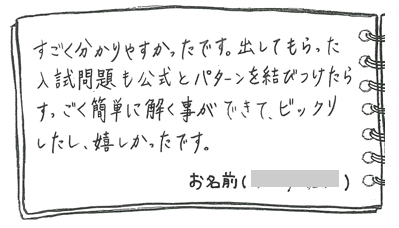 すごく分かりやすかったです。出してもらった
入試問題も公式とパターンを結びつけたら
すっごく簡単に解く事ができて、ビックリ
したし、嬉しかったです。
お名前( )